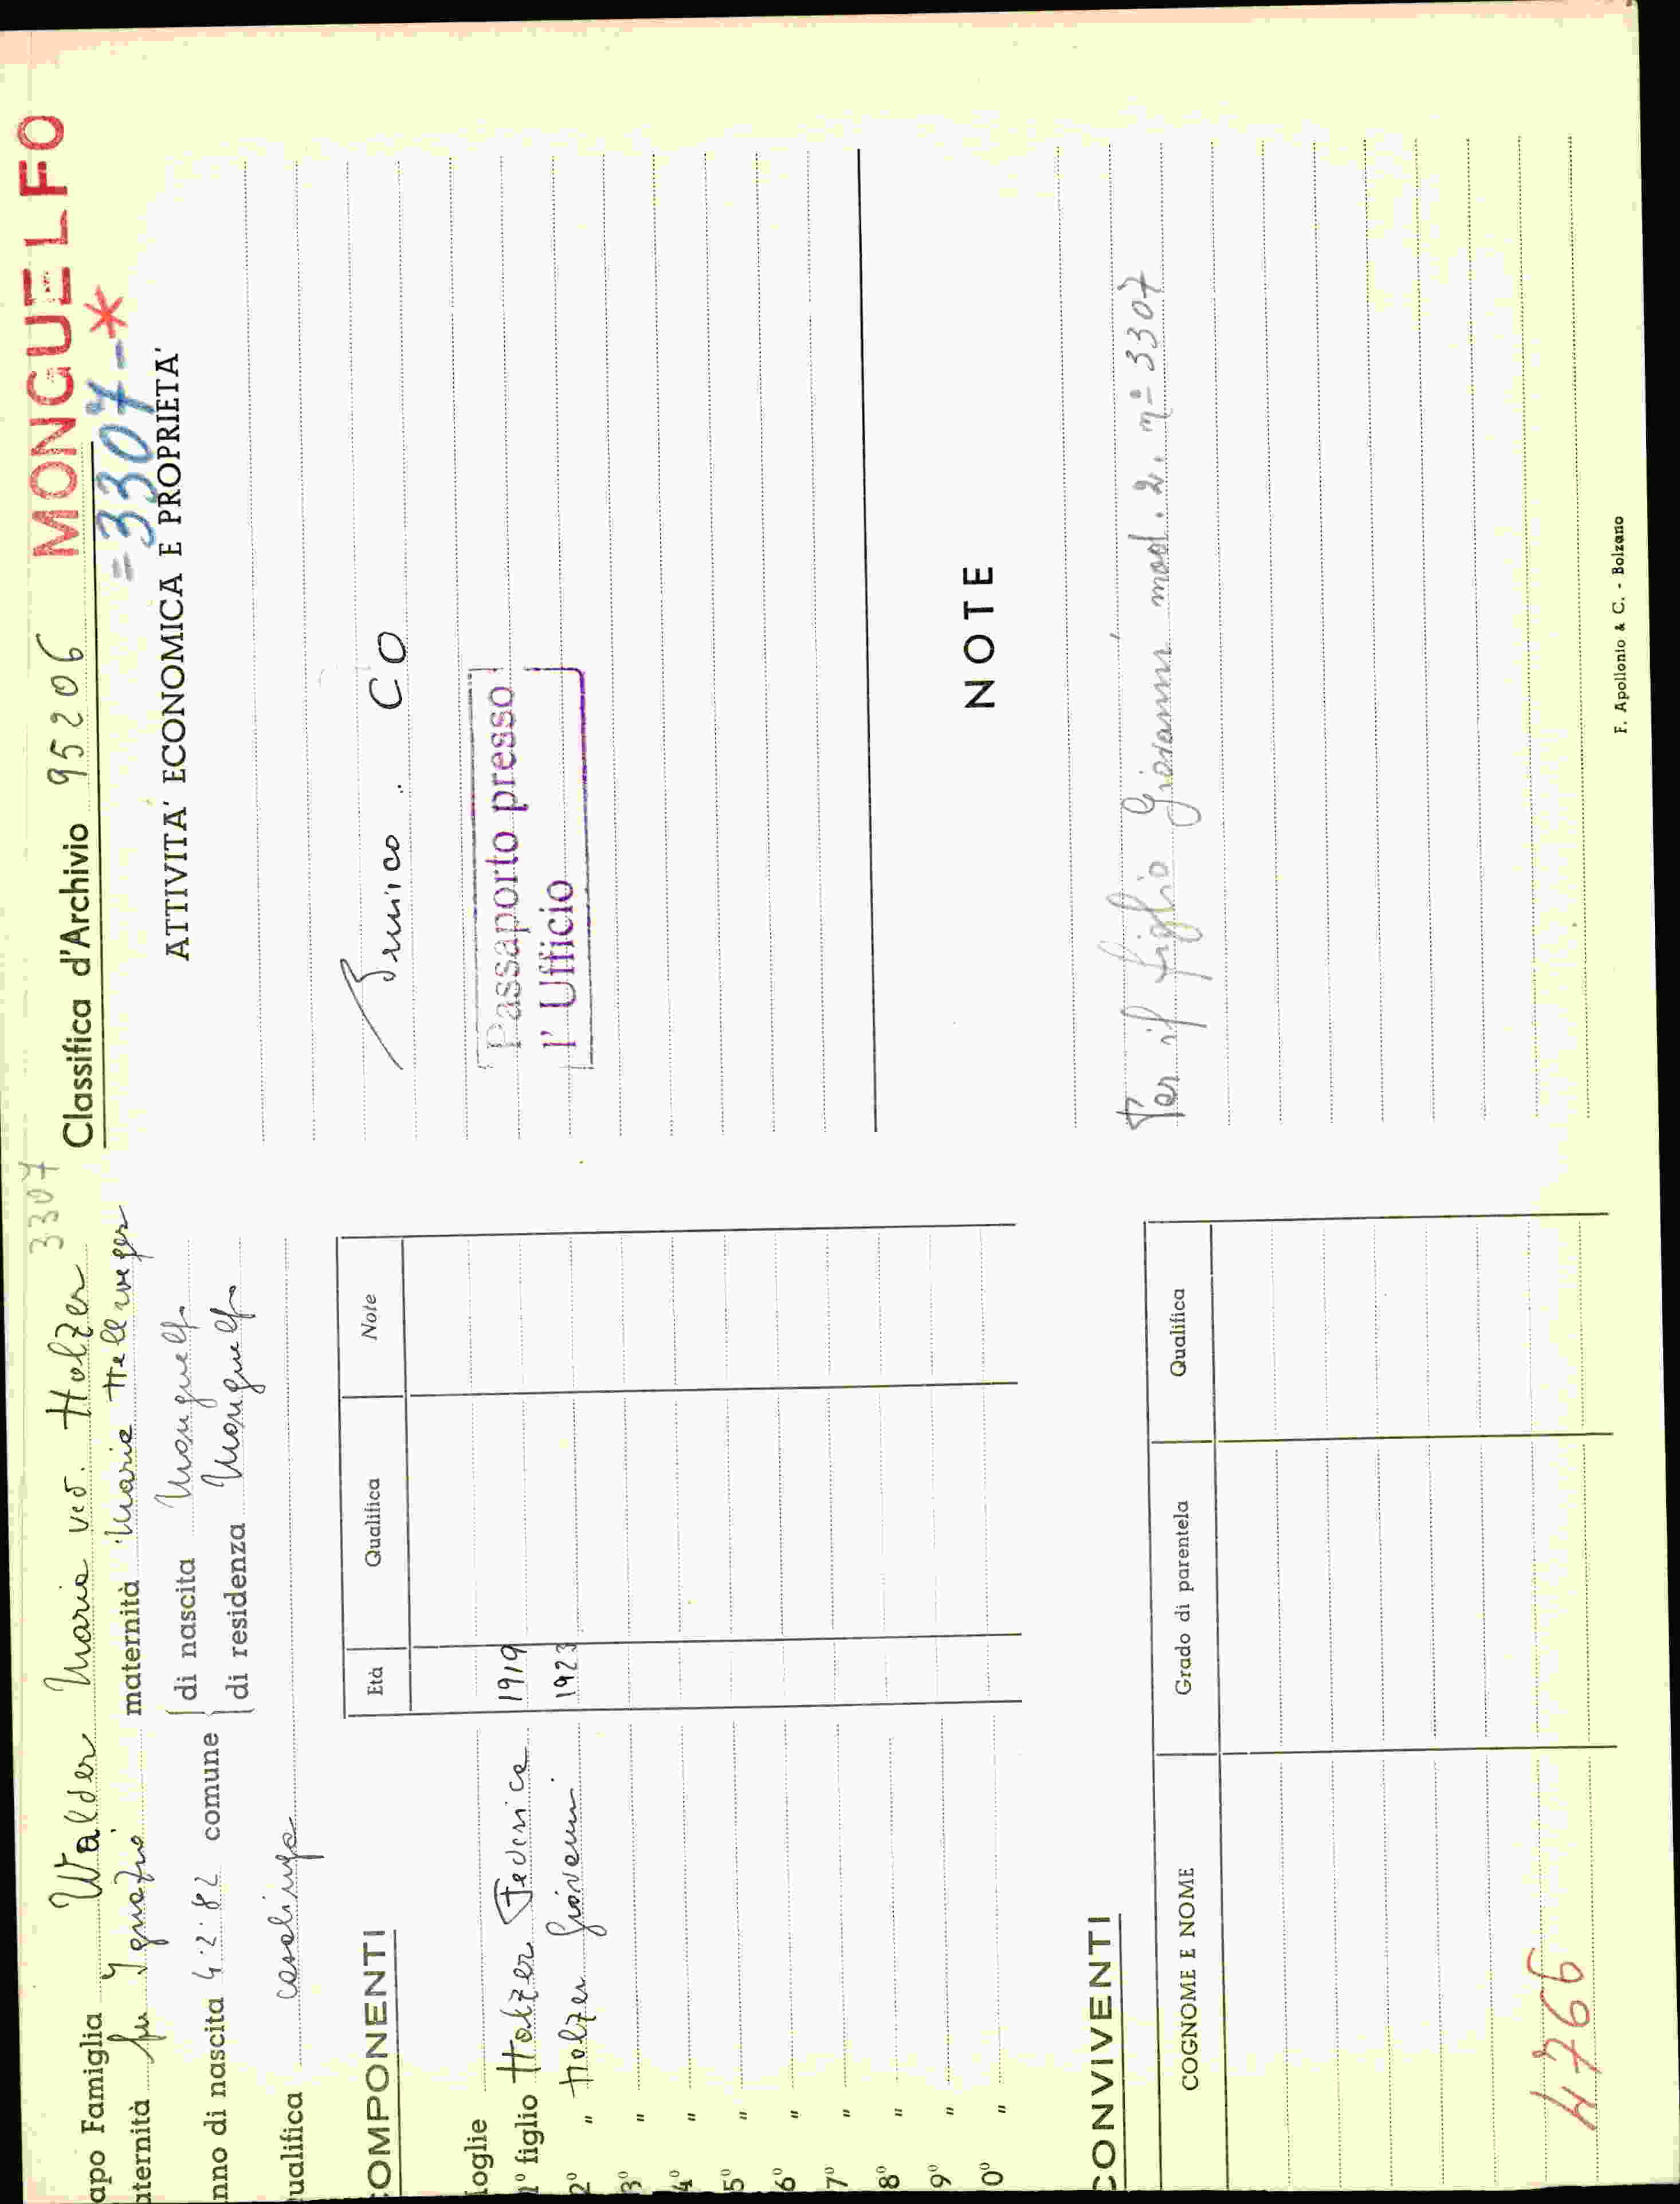 3307
MONGUELFO
apo Famiglia Walder Maria ved. Holzer
Classifica d'Archivio 95206
=3307-*
aternità fu Ignazio maternità Maria Hellweger
nno di nascita 4.2.82 comune
di nascita Monguelfo
di residenza Monguelfo
ualifica casalinga
OMPONENTI
Età
Qualifica
Note
oglie
1° figlio Holzer Federica 1919
2° " Holzer Giovanni 1923
3° "
4° "
5° "
6° "
7° "
8° "
9° "
0° "
CONVIVENTI
COGNOME E NOME
Grado di parentela
Qualifica
4766
ATTIVITA' ECONOMICA E PROPRIETA'
CO
Passaporto presso
l' Ufficio
NOTE
Per il figlio Giovanni mod. 2. n° 3307
F. Apollonio & C. - Bolzano